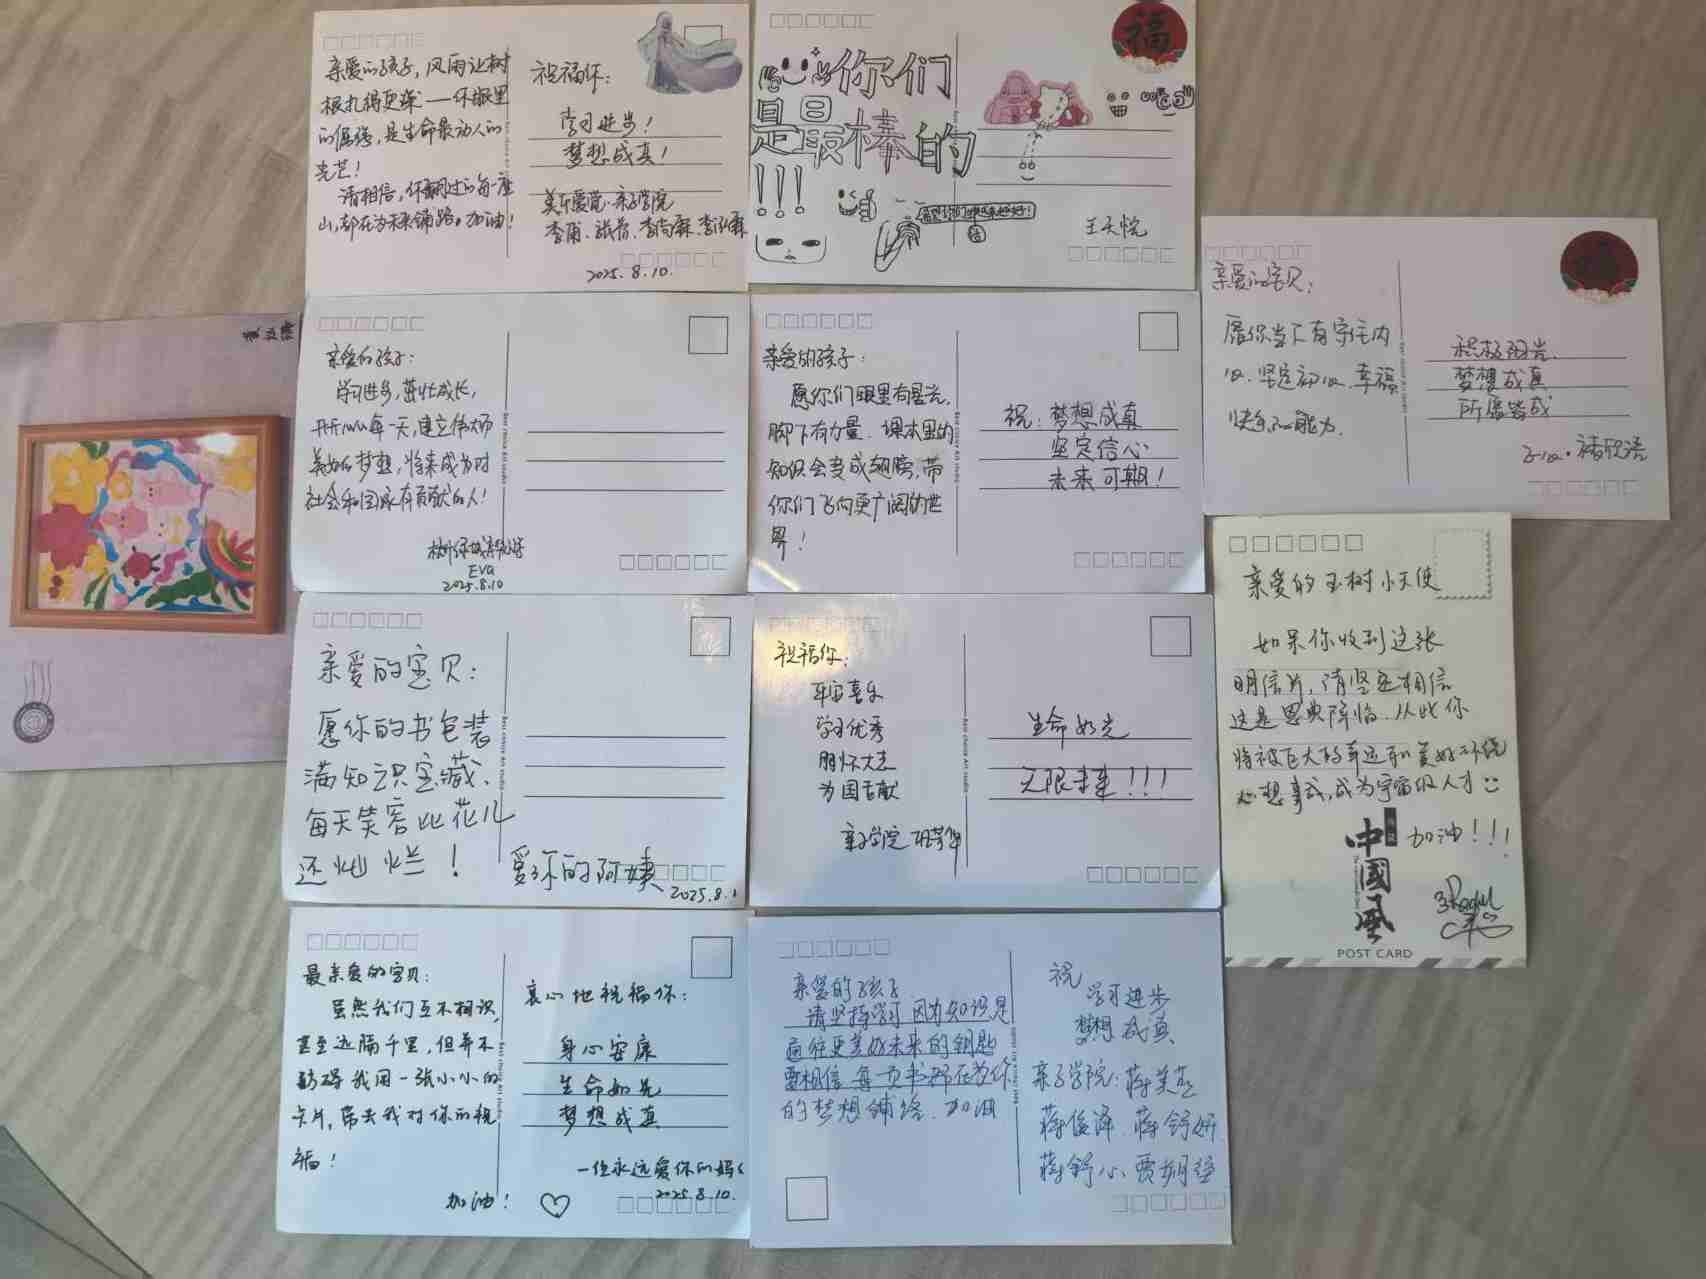 亲爱的孩子，风雨让树
根扎得更深——你眼里
的倔强，是生命最动人的
光芒！
请相信，你翻过的每一座
山，都在为未来铺路。加油！
祝福你：
学习进步！
梦想成真！
亲子学院
2025.8.10.
福
你们
是最棒的
!!!
王天悦
亲爱的宝贝：
愿你当下有守住内
心、坚定初心、幸福
快乐的能力.
积极阳光
梦想成真
所愿皆成
亲爱的孩子：
学习进步，茁壮成长，
开开心心每一天，建立伟大而
美好的梦想，将来成为对
社会和国家有贡献的人！
EVA
2025.8.10
亲爱的孩子：
愿你们眼里有星光，
脚下有力量，课本里的
知识会变成翅膀，带
你们飞向更广阔的世
界！
祝：梦想成真
坚定信心
未来可期！
亲爱的玉树小天使
如果你收到这张
明信片，请坚定相信
这是恩典降临．从此你
将被巨大的幸运和美好环绕
心想事成，成为宇宙级人才
加油！！！
中國風
POST CARD
亲爱的宝贝：
愿你的书包装
满知识宝藏、
每天笑容比花儿
还灿烂！
爱你的阿姨
2025.8.1
祝福你：
平安喜乐
学习优秀
胸怀大志
为国贡献
亲子学院
生命如光
无限未来！！！
最亲爱的宝贝：
虽然我们互不相识，
甚至远隔千里，但并不
妨碍我用一张小小的
卡片，带去我对你的祝
福！
加油！
衷心地祝福你：
身心安康
生命如光
梦想成真
一位永远爱你的妈妈
2025.8.10.
亲爱的孩子
请坚持学习 因为知识是
通往更美好未来的钥匙
要相信 每一页书都在为你
的梦想铺路．加油
祝
学习进步
梦想成真
亲子学院：蒋美燕
蒋俊泽．蒋舒妍
蒋舒心